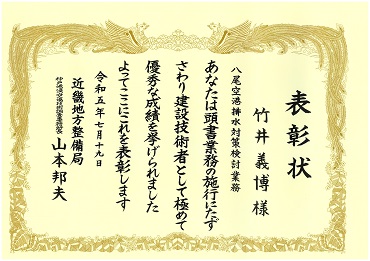 表彰状
竹井義博様
八尾空港排水対策検討業務
あなたは頭書業務の施行にたず
さわり建設技術者として極めて
優秀な成績を挙げられました
よってここにこれを表彰します
令和五年七月十九日
近畿地方整備局
山本邦夫